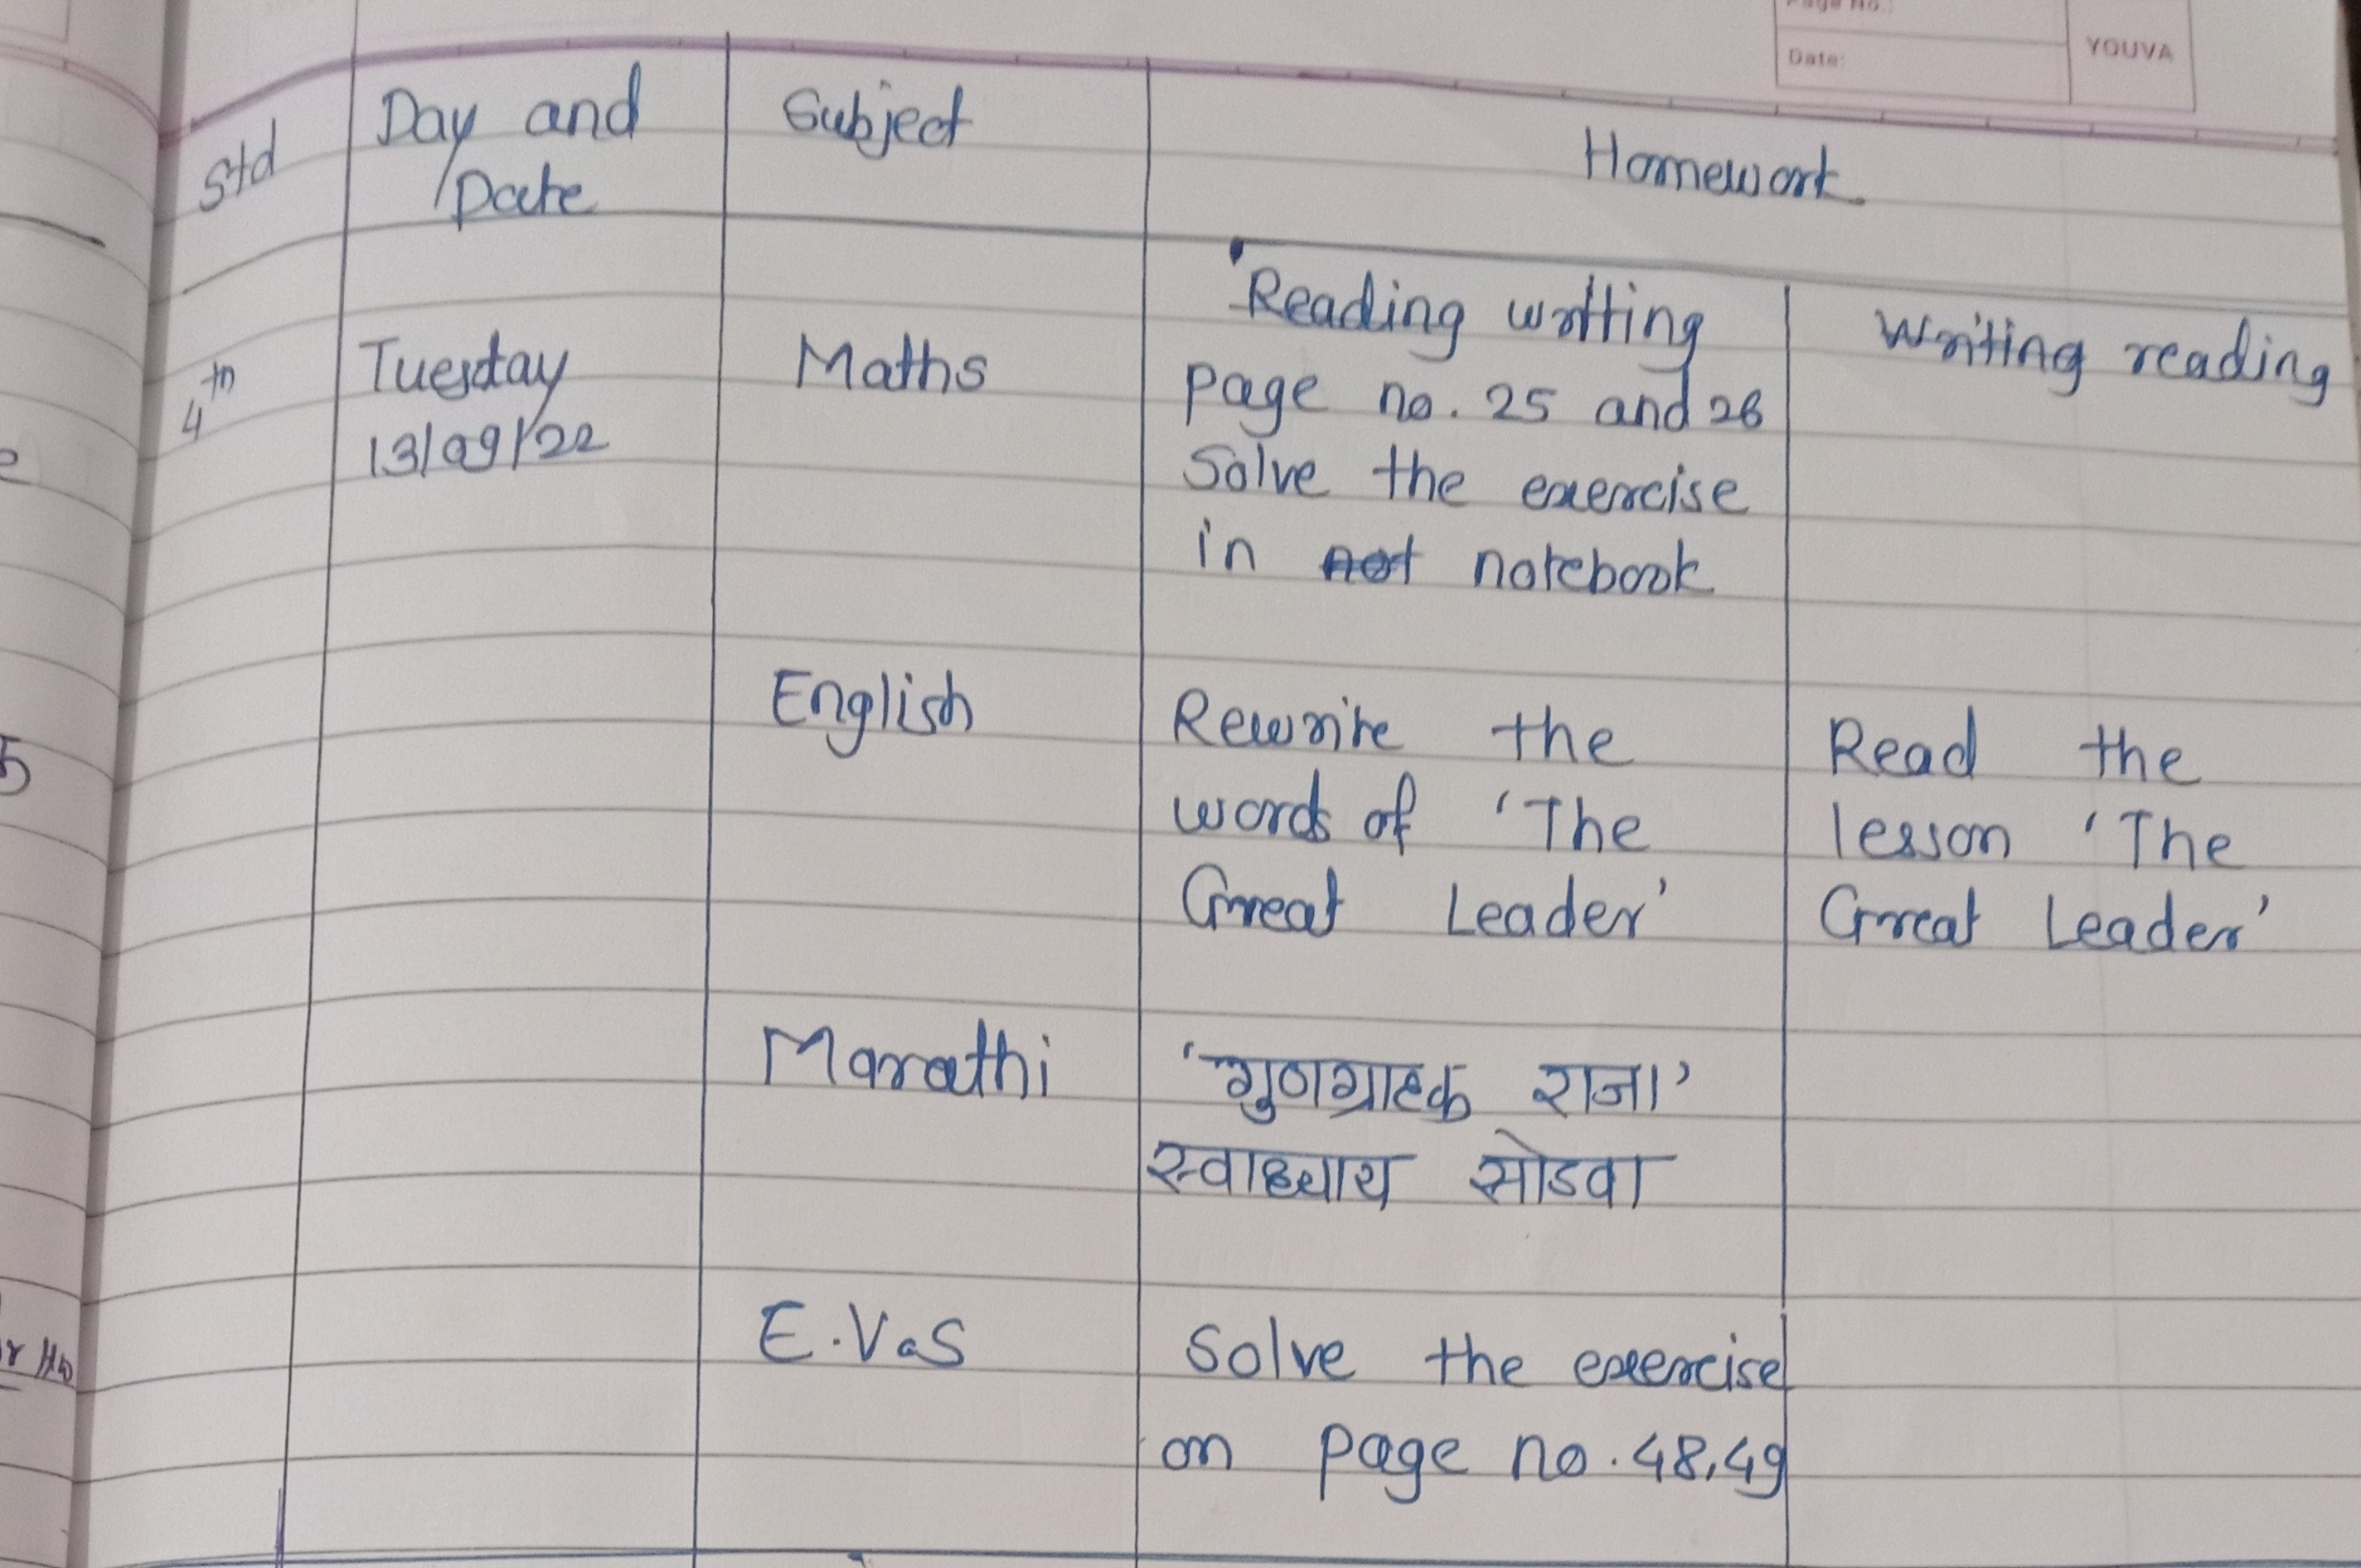 Page No.:
Date:
YOUVA
Std
Day and
Date
Subject
Homework
Reading writting
Writing reading
4th
Tuesday
13/09/22
Maths
page no. 25 and 26
Solve the exercise
in not notebook
English
Rewrite the
words of 'The
Great Leader'
Read the
lesson 'The
Great Leader'
Marathi
'गुणग्राहक राजा'
स्वाध्याय सोडवा
E.V.S
Solve the exercise
on page no. 48,49
5
r Hw